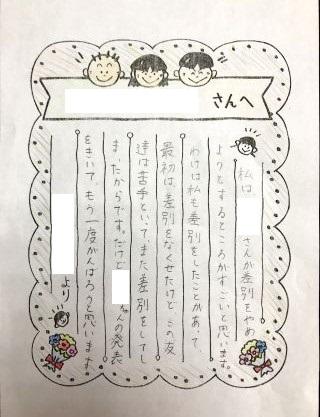 さんへ
私は、さんが差別をやめ
ようとするところがすごいと思います。
わけは私も差別をしたことがあって、
最初は、差別をなくせたけど、この友
達は苦手といって、また差別をしてし
まったからです。だけどさんの発表
をきいて、もう一度がんばろうと思います。
より